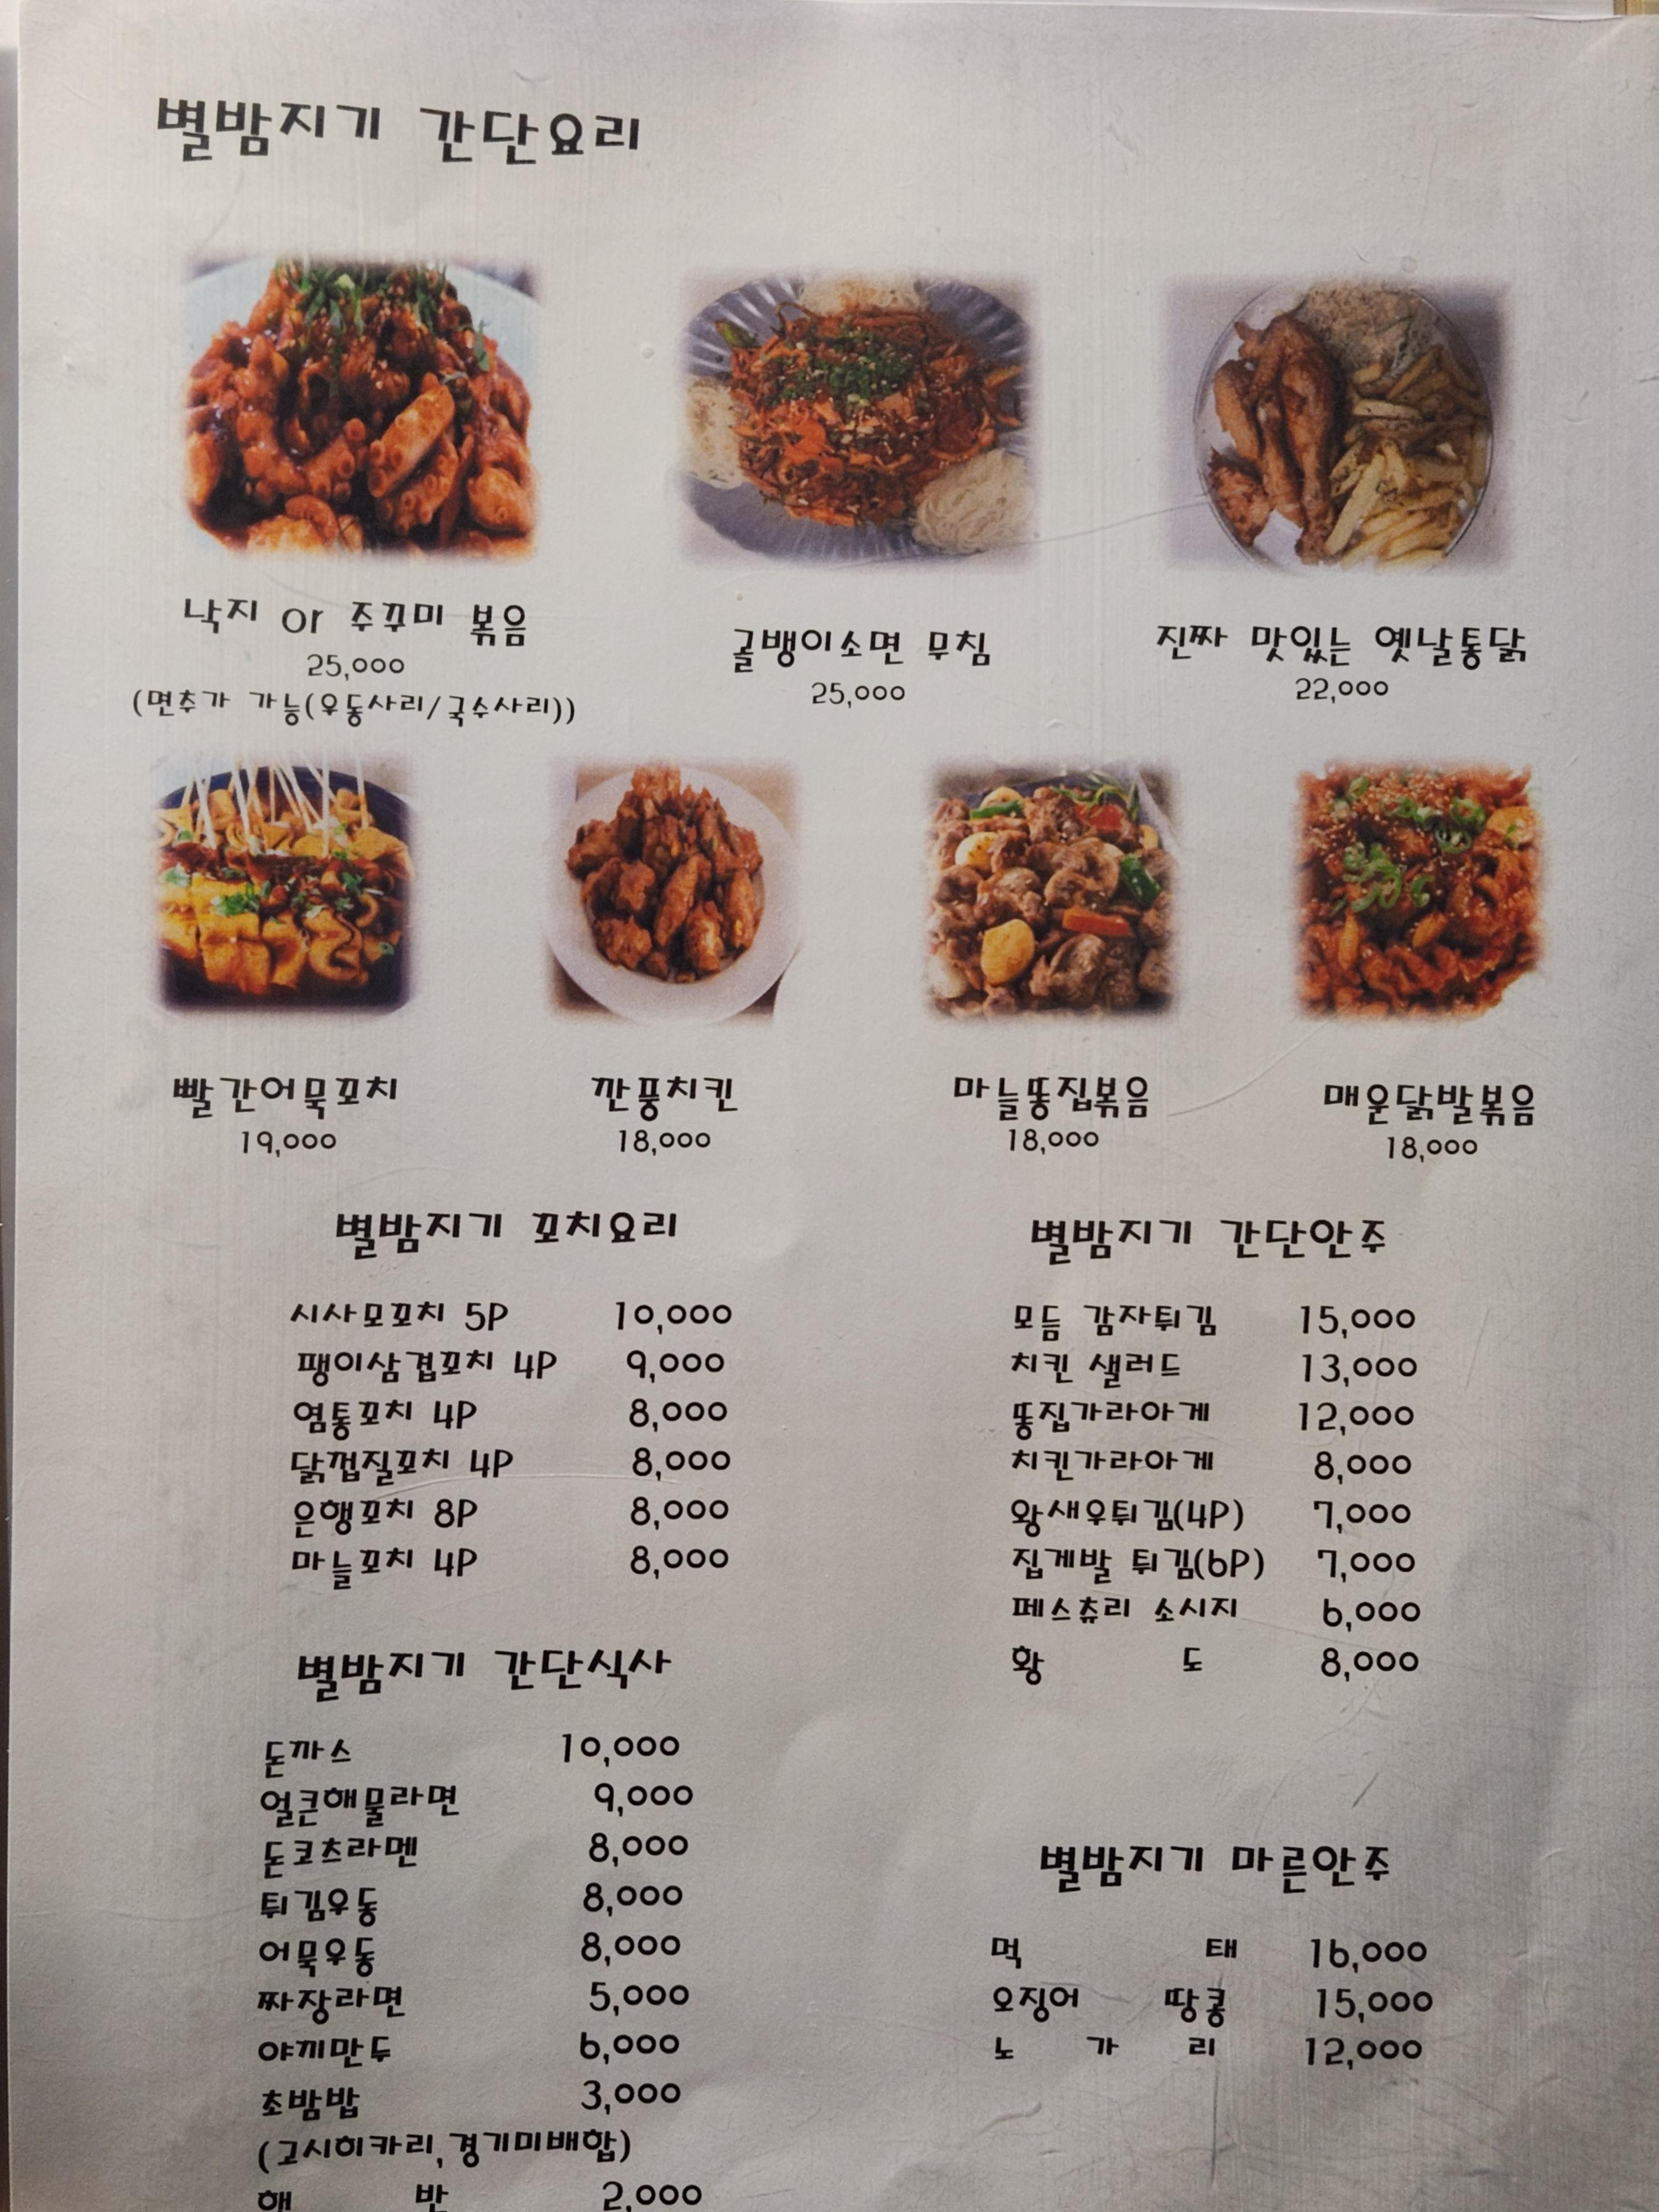 별밤지기 간단요리
낙지 or 주꾸미 볶음
25,000
(면추가 가능(우동사리/국수사리))
골뱅이소면 무침
25,000
진짜 맛있는 옛날통닭
22,000
빨간어묵꼬치
19,000
깐풍치킨
18,000
마늘똥집볶음
18,000
매운닭발볶음
18,000
별밤지기 꼬치요리
시사모꼬치 5P 10,000
팽이삼겹꼬치 4P 9,000
염통꼬치 4P 8,000
닭껍질꼬치 4P 8,000
은행꼬치 8P 8,000
마늘꼬치 4P 8,000
별밤지기 간단안주
모듬 감자튀김 15,000
치킨 샐러드 13,000
똥집가라아게 12,000
치킨가라아게 8,000
왕새우튀김(4P) 7,000
집게발 튀김(6P) 7,000
페스츄리 소시지 6,000
황 도 8,000
별밤지기 간단식사
돈까스 10,000
얼큰해물라면 9,000
돈코츠라멘 8,000
튀김우동 8,000
어묵우동 8,000
짜장라면 5,000
야끼만두 6,000
초밤밥 3,000
(고시히카리,경기미배합)
햇 반 2,000
별밤지기 마른안주
먹 태 16,000
오징어 땅콩 15,000
노 가 리 12,000